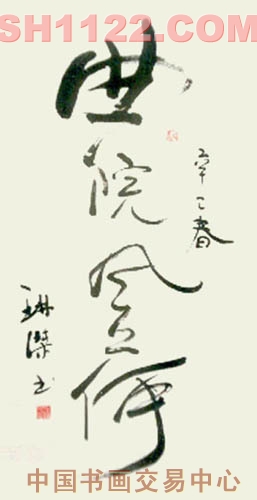 SH1122.COM
曲院风荷
辛巳春
琳傑书
中国书画交易中心